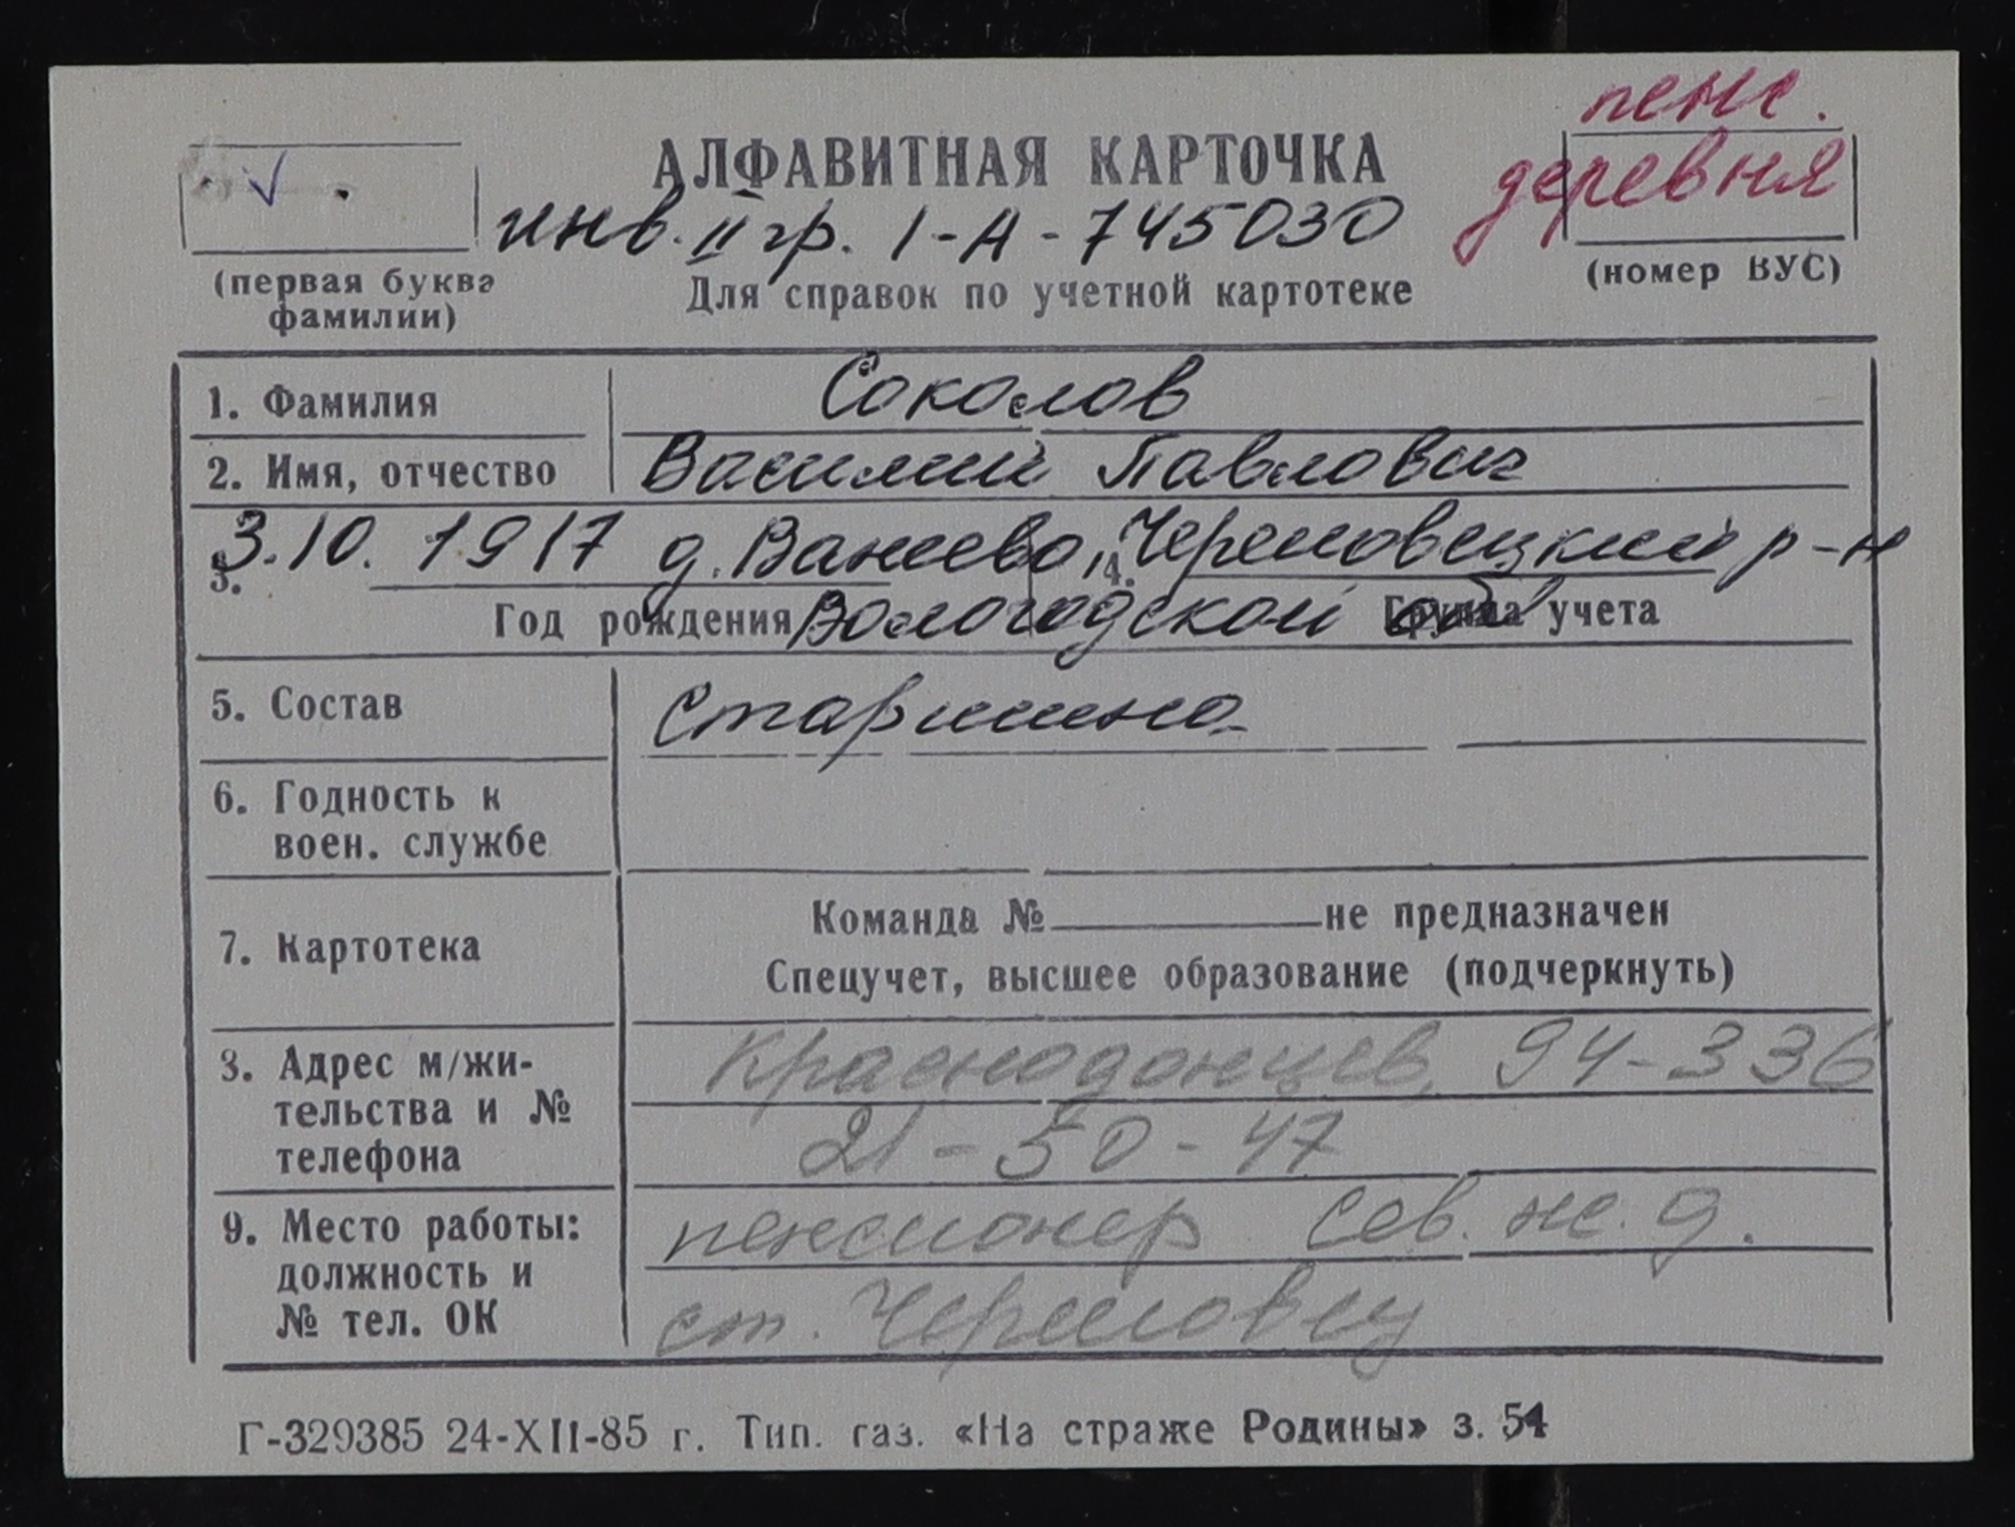 пенс.
деревня
АЛФАВИТНАЯ КАРТОЧКА
инв. II гр. I-А-745030
(первая буква
фамилии)
Для справок по учетной картотеке
(номер ВУС)
1. Фамилия Соколов
2. Имя, отчество Василий Павлович
3. 3.10.1917 д. Ванеево, Череповецкий р-н
4.
Год рождения Вологодской об Группа учета
5. Состав Старшина
6. Годность к
воен. службе
7. Картотека
Команда № не предназначен
Спецучет, высшее образование (подчеркнуть)
8. Адрес м/жи-
тельства и №
телефона
Краснодонцев, 94-336
21-50-47
9. Место работы:
должность и
№ тел. ОК
пенсионер Сев. ж. д.
ст. Череповец
Г-329385 24-XII-85 г. Тип. газ. «На страже Родины» з. 54